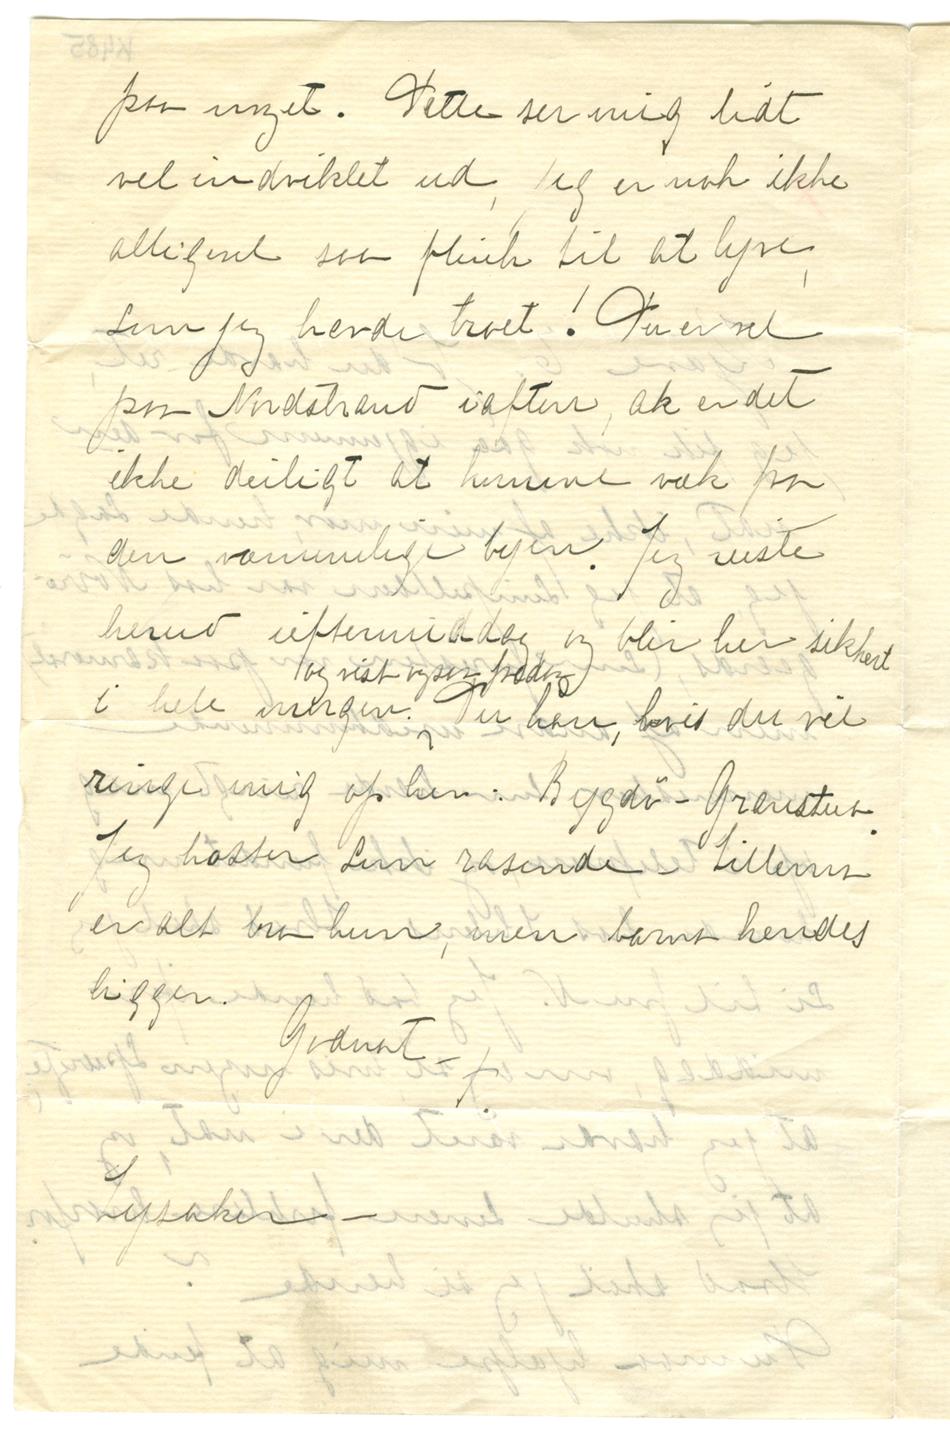 paa noget. Dette ser mig lidt
vel indviklet ud, jeg er nok ikke
alligevel saa flink til at lyve,
som jeg havde troet! Du er vel
paa Nordstrand iaften, ak er det
ikke deiligt at komme væk fra
den vammelige byen. Jeg reiste
herud ieftermiddag og blir her sikkert
og vist ogsaa fredag
i hele morgen. Du kan, hvis du vil
ringe mig op her: Bygdö - Granstua.
Jeg hoster som rasende - Tillema
er alt bra hun, men barnet hendes
ligger.
Godnat -
Lysaker -